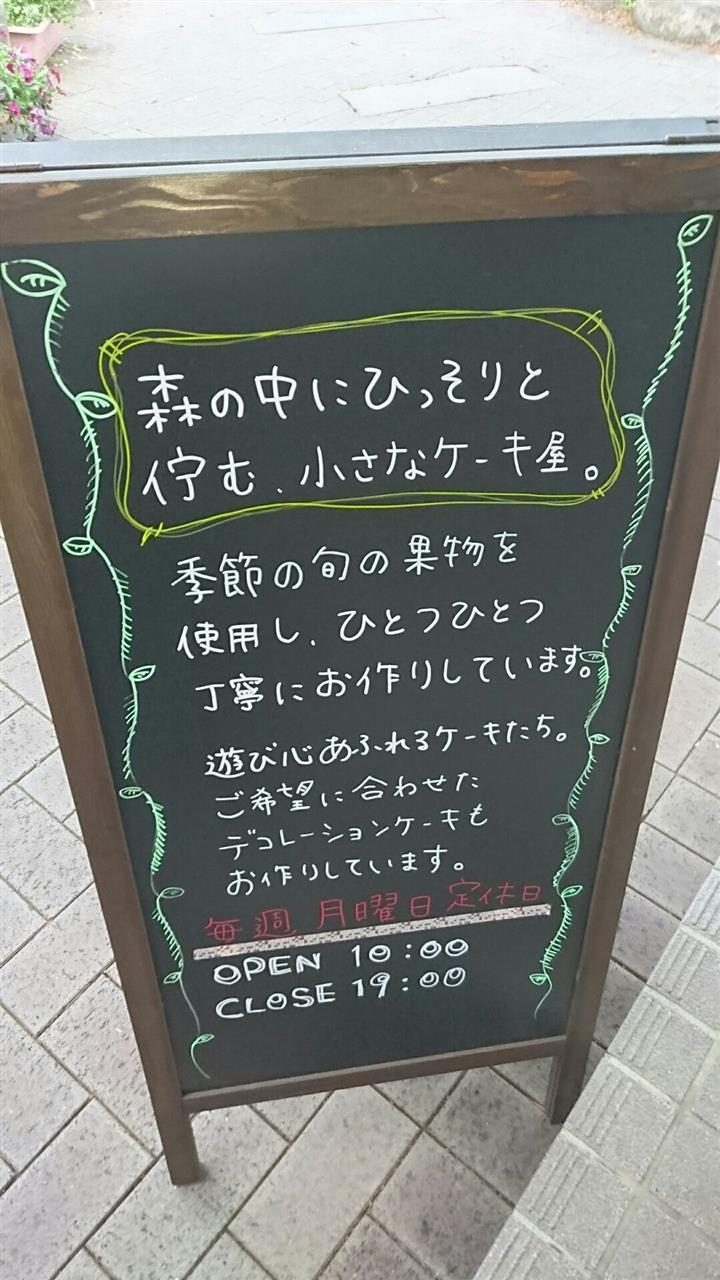 森の中にひっそりと
佇む、小さなケーキ屋。
季節の旬の果物を
使用し、ひとつひとつ
丁寧にお作りしています。
遊び心あふれるケーキたち。
ご希望に合わせた
デコレーションケーキも
お作りしています。
毎週 月曜日 定休日
OPEN 10:00
CLOSE 19:00